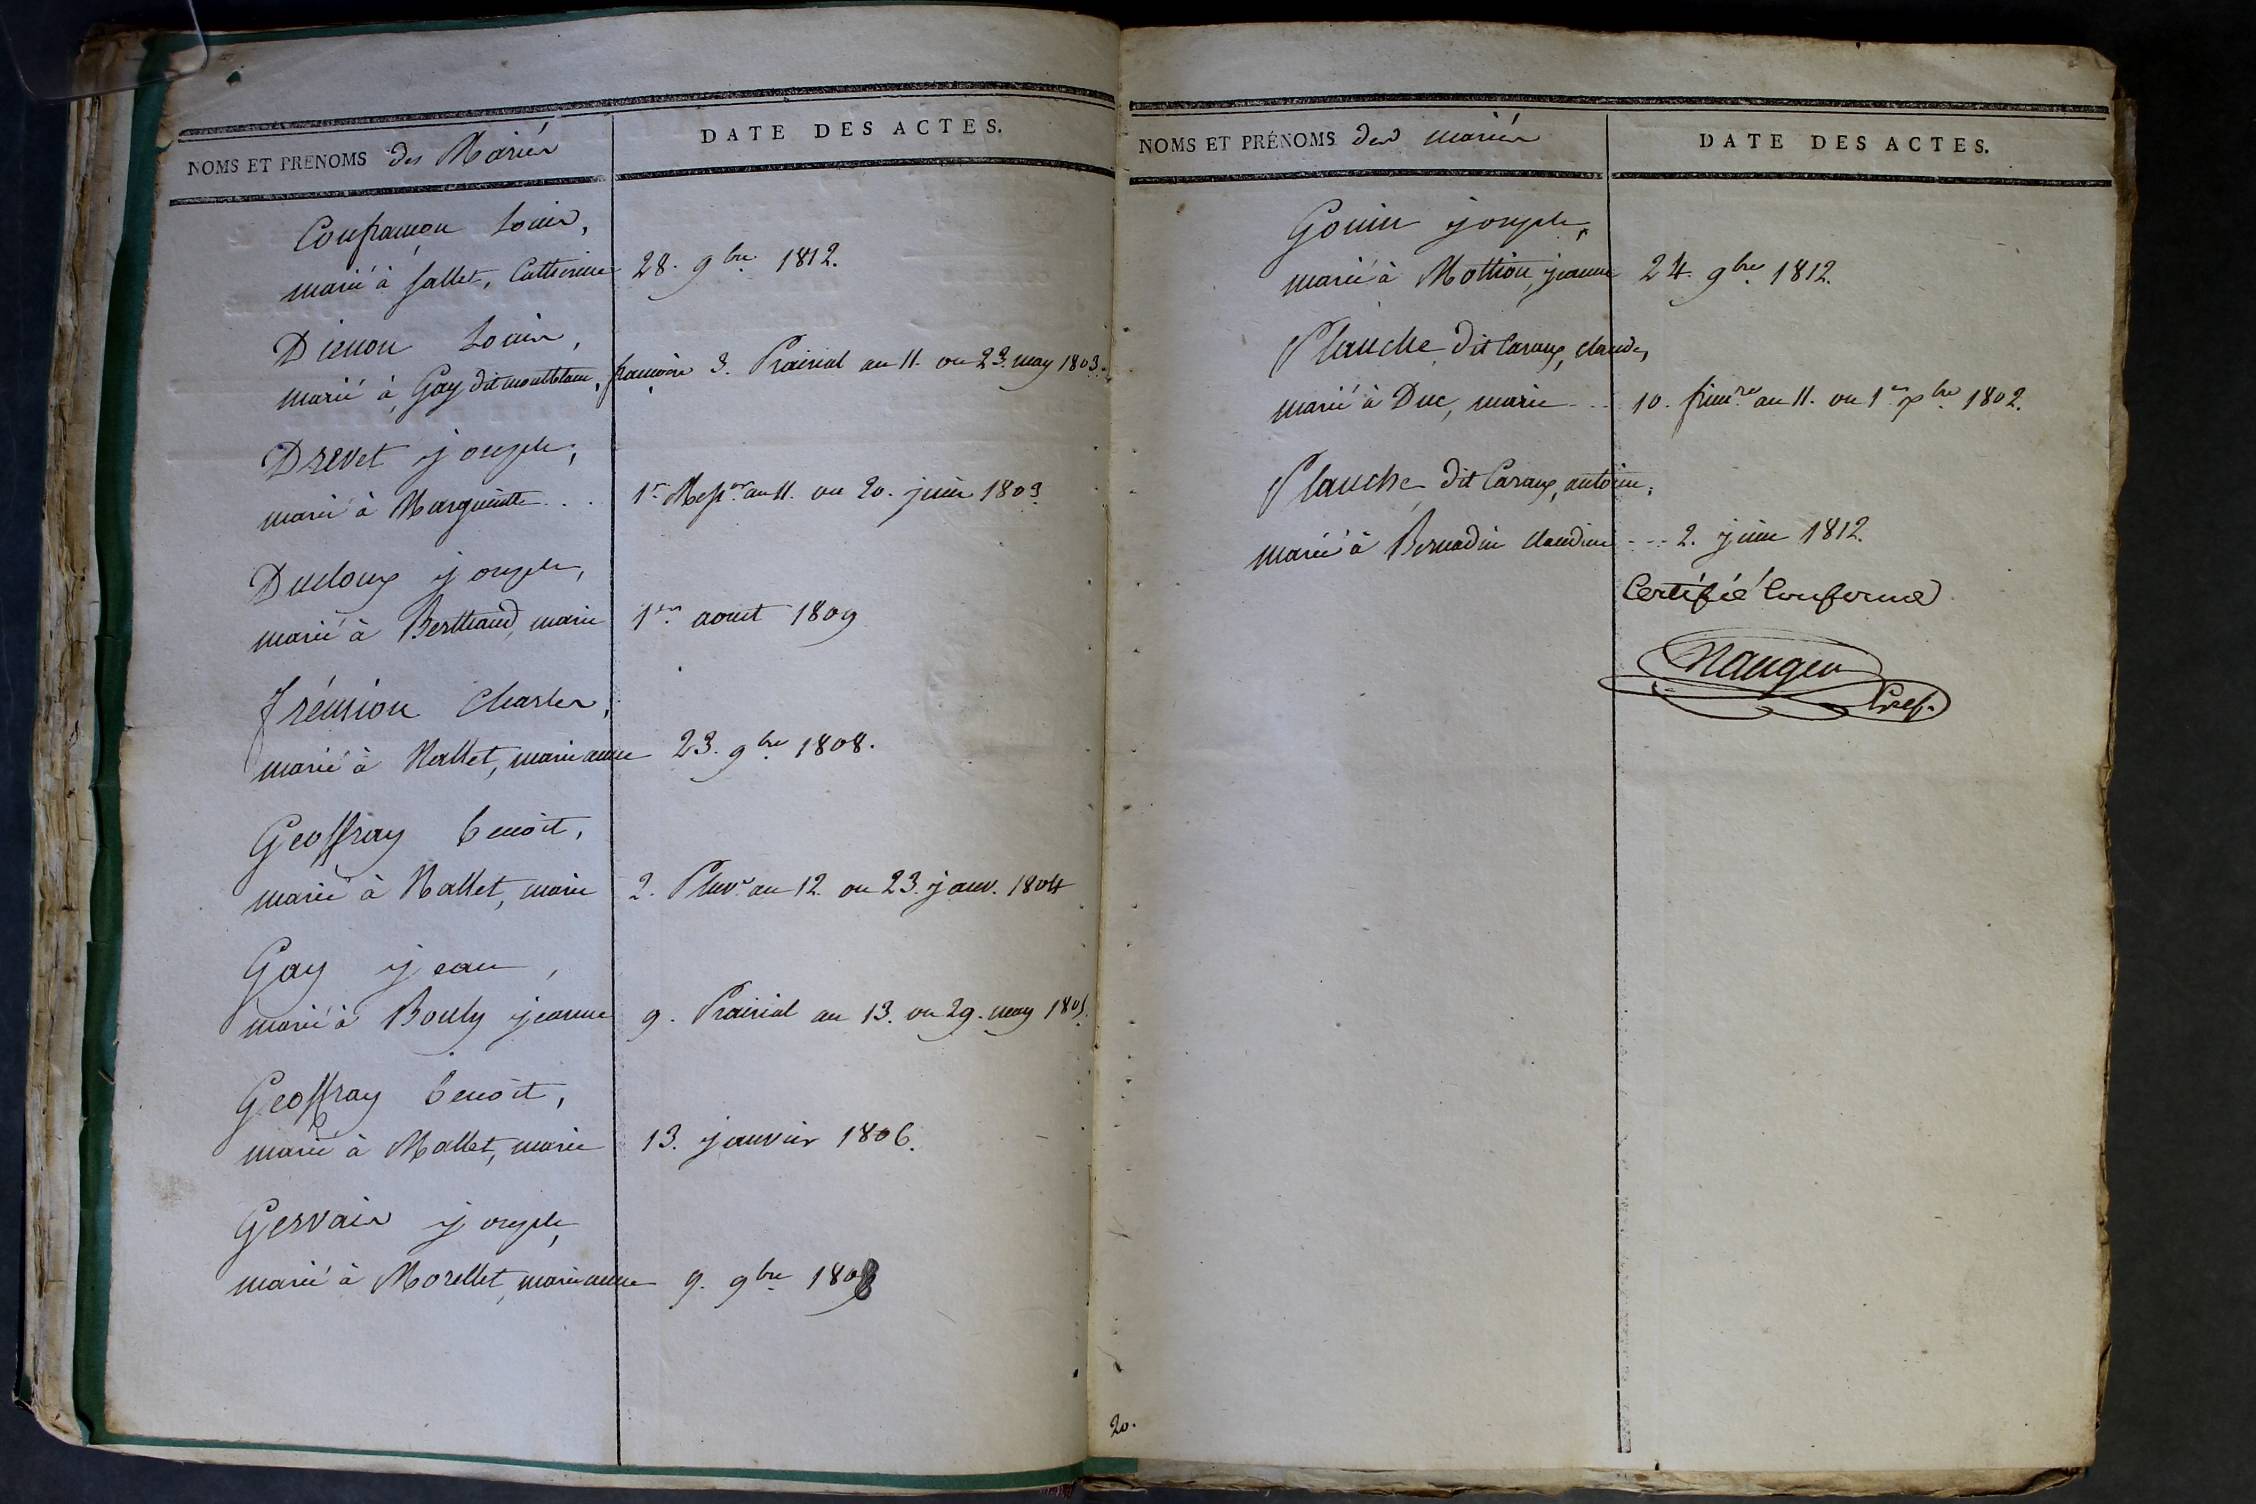 NOMS ET PRENOMS des Mariés
DATE DES ACTES.
Confrançon Louis,
marié à Sallet, Catherine 28. 9bre. 1812.
Dienon Louis,
marié à Gay dit montblanc, françoise 3. Prairial an 11. ou 23. may 1803.
Drevet joseph,
marié à Marguerite . . 1er Messor an 11. ou 20. juin 1803
Ducloux joseph,
marié à Berthaud, marie 1er aout 1809
frémion Charles,
marié à Nallet, marie anne 23. 9bre 1808.
Geoffray benoît,
marié à Nallet, marie 2. Pluvse an 12. ou 23. janv. 1804
Gay jean,
marié à Bouly jeanne 9. Prairial an 13. ou 29. may 1805.
Geoffray benoît,
marié à Mallet, marie 13. janvier 1806.
Gervais joseph,
marié à Morellet, marie anne 9. 9bre 1808
NOMS ET PRÉNOMS des mariés
DATE DES ACTES.
Gouin joseph,
marié à Mottion, jeanne 24. 9bre. 1812.
Planche dit Caraux, claude,
marié à Duc, marie - . . 10. frimre an 11. ou 1er Xbre 1802.
Planche dit Caraux, antoine,
marié à Bernadin claudine - - - 2. juin 1812.
Certifié Conforme
Gref.
20.